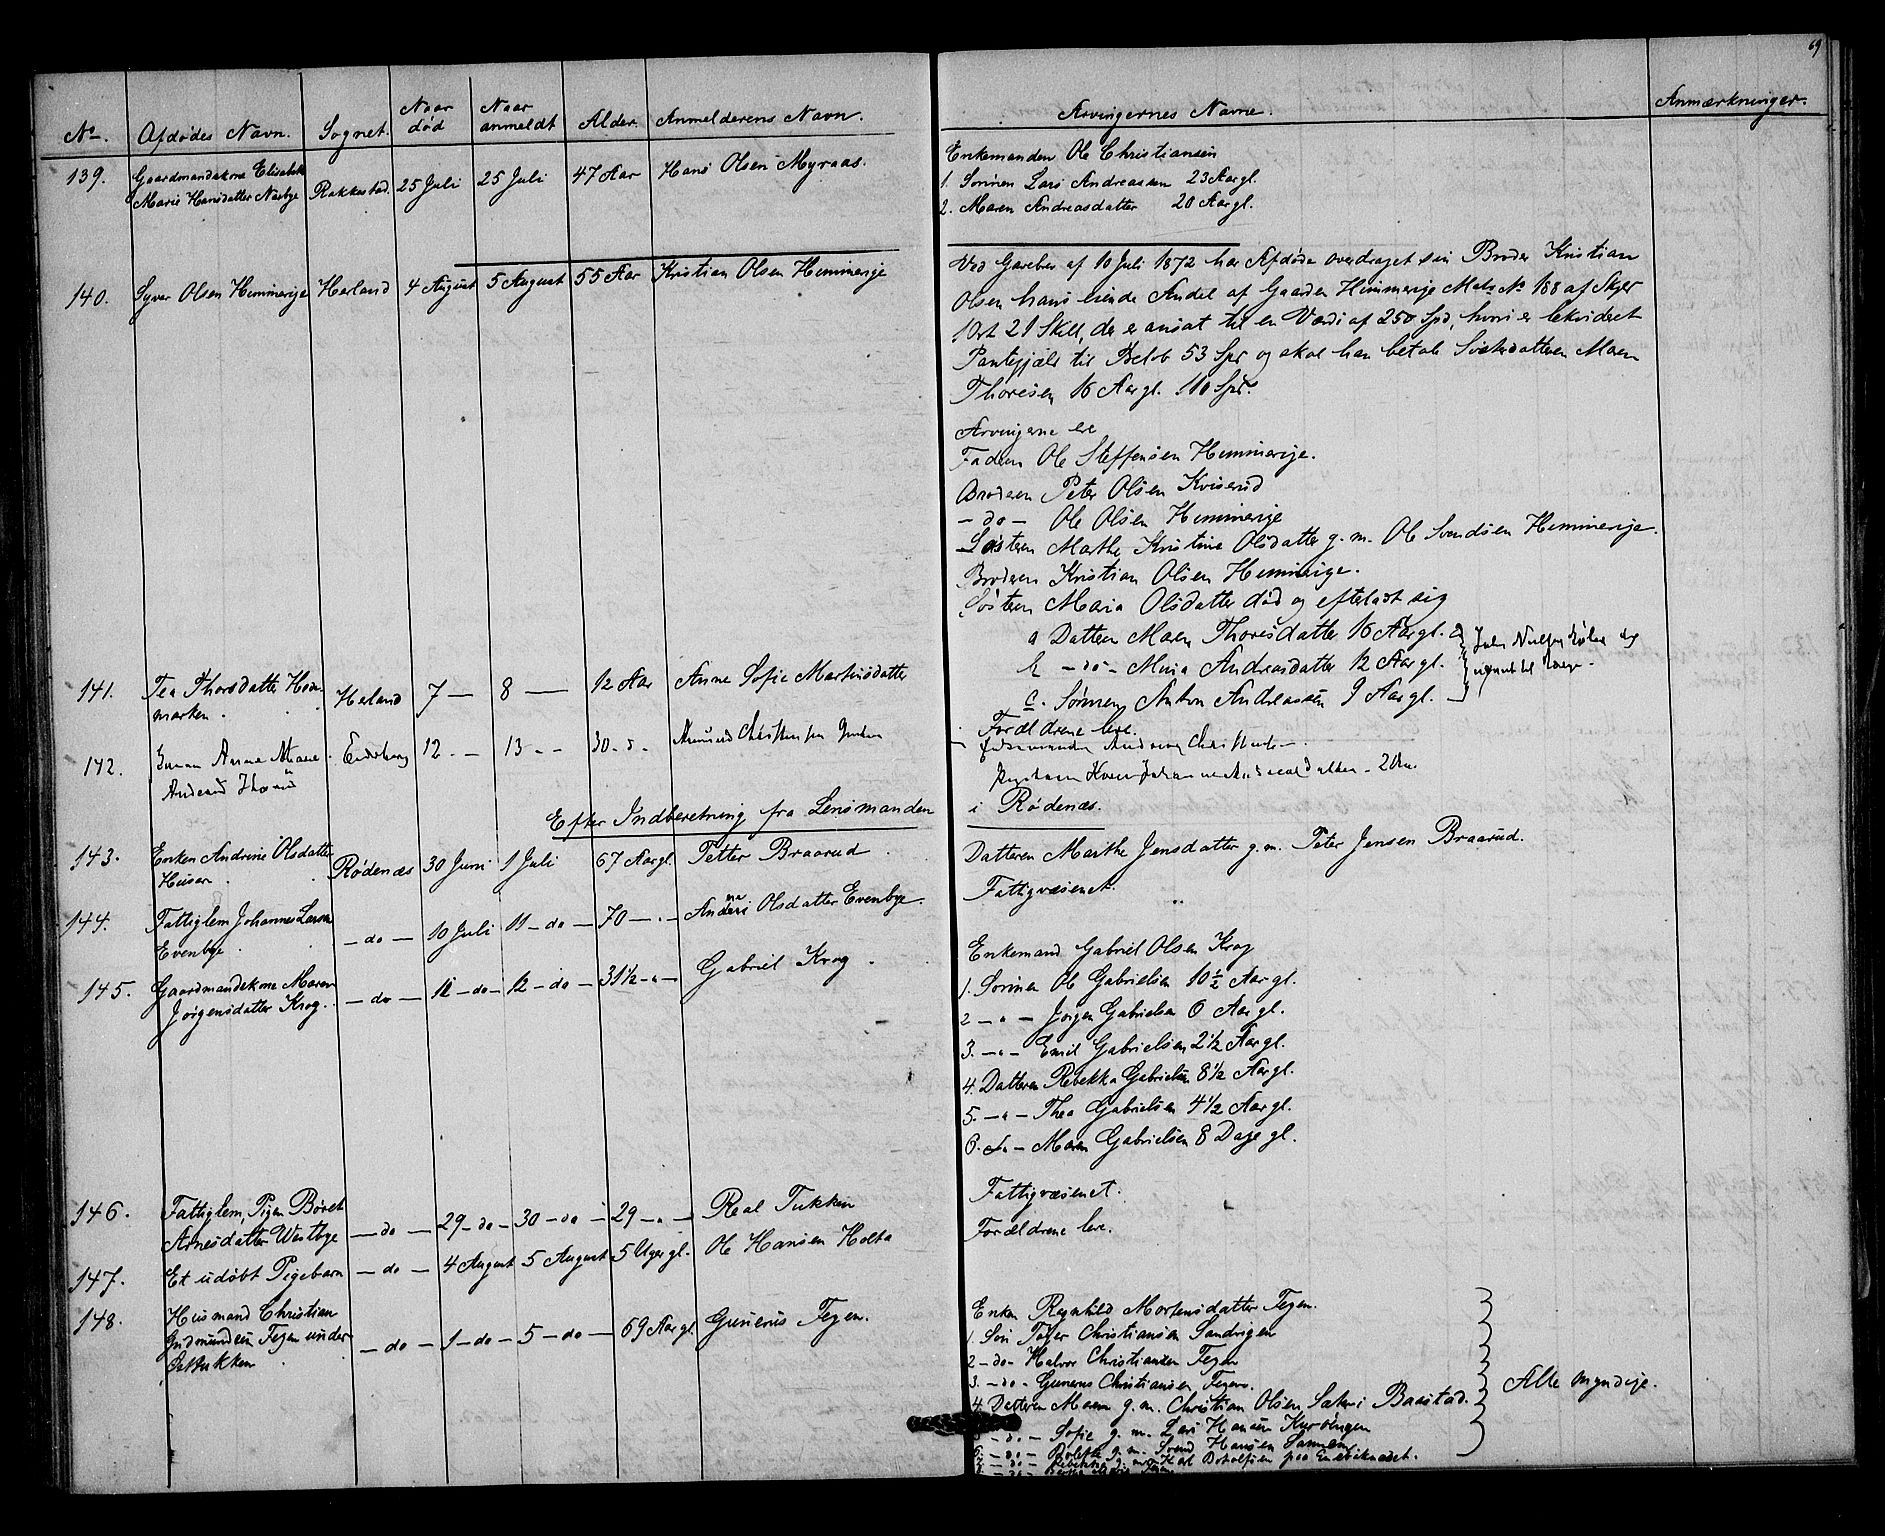 69
No. Afdødes Navn. Sognet. Naar død Naar anmeldt Alder. Anmelderens Navn. Arvingernes Navne. Anmærkninger.
139. Gaardmandskone Elisabeth Marie Hansdatter Næsbye Rakkestad. 25 Juli 25 Juli 47 Aar Hans Olsen Myraas.
Enkemanden Ole Christiansen
1. Sønnen Lars Andreassen 23 Aar gl.
2. Maren Andreasdatter 20 Aar gl.
140. Syver Olsen Hemmerige Herland 4 August 5 August 55 Aar Kristian Olsen Hemmerige
Ved Gavebrev af 10 Juli 1872 har Afdøde overdraget sin Broder Kristian
Olsen hans eiende Andel af Gaarden Himmerige Matr No 188 af Skyld
1 Ort 21 Skill, der er ansat til en Værdi af 250 Spd, hvori er
Pantegjæld til Beløb 53 Spd og skal han betale Søsterdatteren Maren
Thoresen 16 Aar gl. 110 Spd.
Arvingerne ere
Faderen Ole Steffensen Hemmerige.
Broderen Peter Olsen Kviserud
- do - Ole Olsen Hemmerige
Søsteren Marthe Kristine Olsdatter g. m. Ole Svendsen Hemmerige.
Broderen Kristian Olsen Hemmerige.
Søsteren Maria Olsdatter død og efterladt sig
a Datteren Maren Thoresdatter 16 Aar gl.
b - do - Maria Andreasdatter 12 Aar gl.
c. Sønnen Anton Andreassen 9 Aar gl.
141. Tea Thorsdatter Hedemarken. Herland 7 — 8 — 12 Aar Anne Sofie Martinsdatter
Forældrene leve.
142. Anne Marie 12 - - 13 - - 30 -
Enkemanden
i Rødenæs.
Efter Indberetning fra Lensmanden
143. Enken Andrine Olsdatter Husar. Rødenæs 30 Juni 1 Juli 67 Aar gl. Petter Braarud.
Datteren Marthe Jensdatter g. m. Peter Jensen Braarud.
144. Fattiglem Johannes Larsen Evenbye. — do — 10 Juli 11 — do — 70 — " — Olsdatter Evenbye.
Fattigvæsenet.
145. Gaardmandskone Maren Jørgensdatter Krog. — do — 11 — do — 12 — do — 31½ — " — Gabriel Krog.
Enkemand Gabriel Olsen Krog
1. Sønnen Ole Gabrielsen 10½ Aar gl.
2 — " — Jørgen Gabrielsen 6 Aar gl.
3. — " — Emil Gabrielsen 2½ Aar gl.
4. Datteren Rebekka Gabrielsen 8½ Aar gl.
5. — " — Thea Gabrielsen 4½ Aar gl.
6. — " — Maren Gabrielsen 8 Dage gl.
146. Fattiglem, Pigen Børet Arnesdatter Westbye — do — 29 — do — 30 — do — 29 — " — Real Tukken
Fattigvæsenet.
147. Et udøbt Pigebarn — do — 4 August 5 August 5 Uger gl. Ole Hansen Holta
Forældrene leve.
148. Husmand Christian Gudmundsen Tegen under — do — 1 — do — 5 — do — 69 Aar gl. Gunerius Tegen.
Enken Regnhild Mortensdatter Tegen.
1. Søn Peter Christiansen Sandvigen
2 — do — Halvor Christiansen Tegen
3. — do — Gunerus Christiansen Tegen.
4. Datteren Maren g. m. Christian Olsen Sæter i Baastad. Alle myndige.
— do — Sofie g. m. Lars Hansen
6. — do — Bolette g. m. Svend Hansen
— do — g. m. Karl